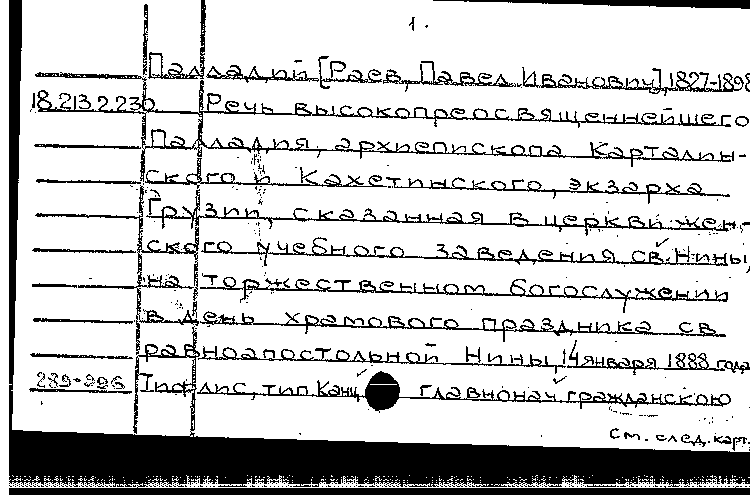 1.
Палладий [Раев, Павел Иванович], 1827-1898
18.213.2.230. Речь высокопреосвященнейшего
Палладия, архиепископа Карталин-
ского и Кахетинского, экзарха
Грузии, сказанная в церкви жен-
ского учебного заведения св. Нины,
на торжественном богослужении
в день храмового праздника св.
равноапостольной Нины, 14 января 1888 года
Тифлис, тип. Канц. главнонач. гражданскою
см. след. карт.